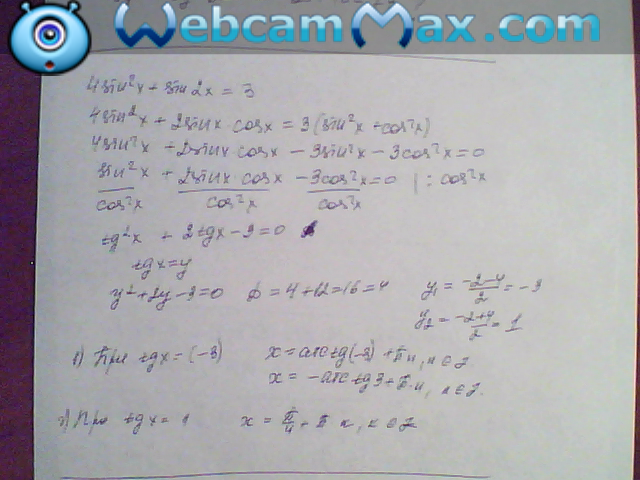 WebcamMax.com
4sin²x + sin2x = 3
4sin²x + 2sinx cosx = 3(sin²x + cos²x)
4sin²x + 2sinx cosx - 3sin²x - 3cos²x = 0
sin²x/cos²x + 2sinx cosx/cos²x - 3cos²x/cos²x = 0 | : cos²x
tg²x + 2tgx - 3 = 0
tgx = y
y² + 2y - 3 = 0 D = 4 + 12 = 16 = 4 y₁ = (-2-4)/2 = -3
y₂ = (-2+4)/2 = 1
1) При tgx = (-3) x = arctg(-3) + πn, n ∈ Z
x = -arctg3 + πn, n ∈ Z.
2) При tgx = 1 x = π/4 + πk, k ∈ Z